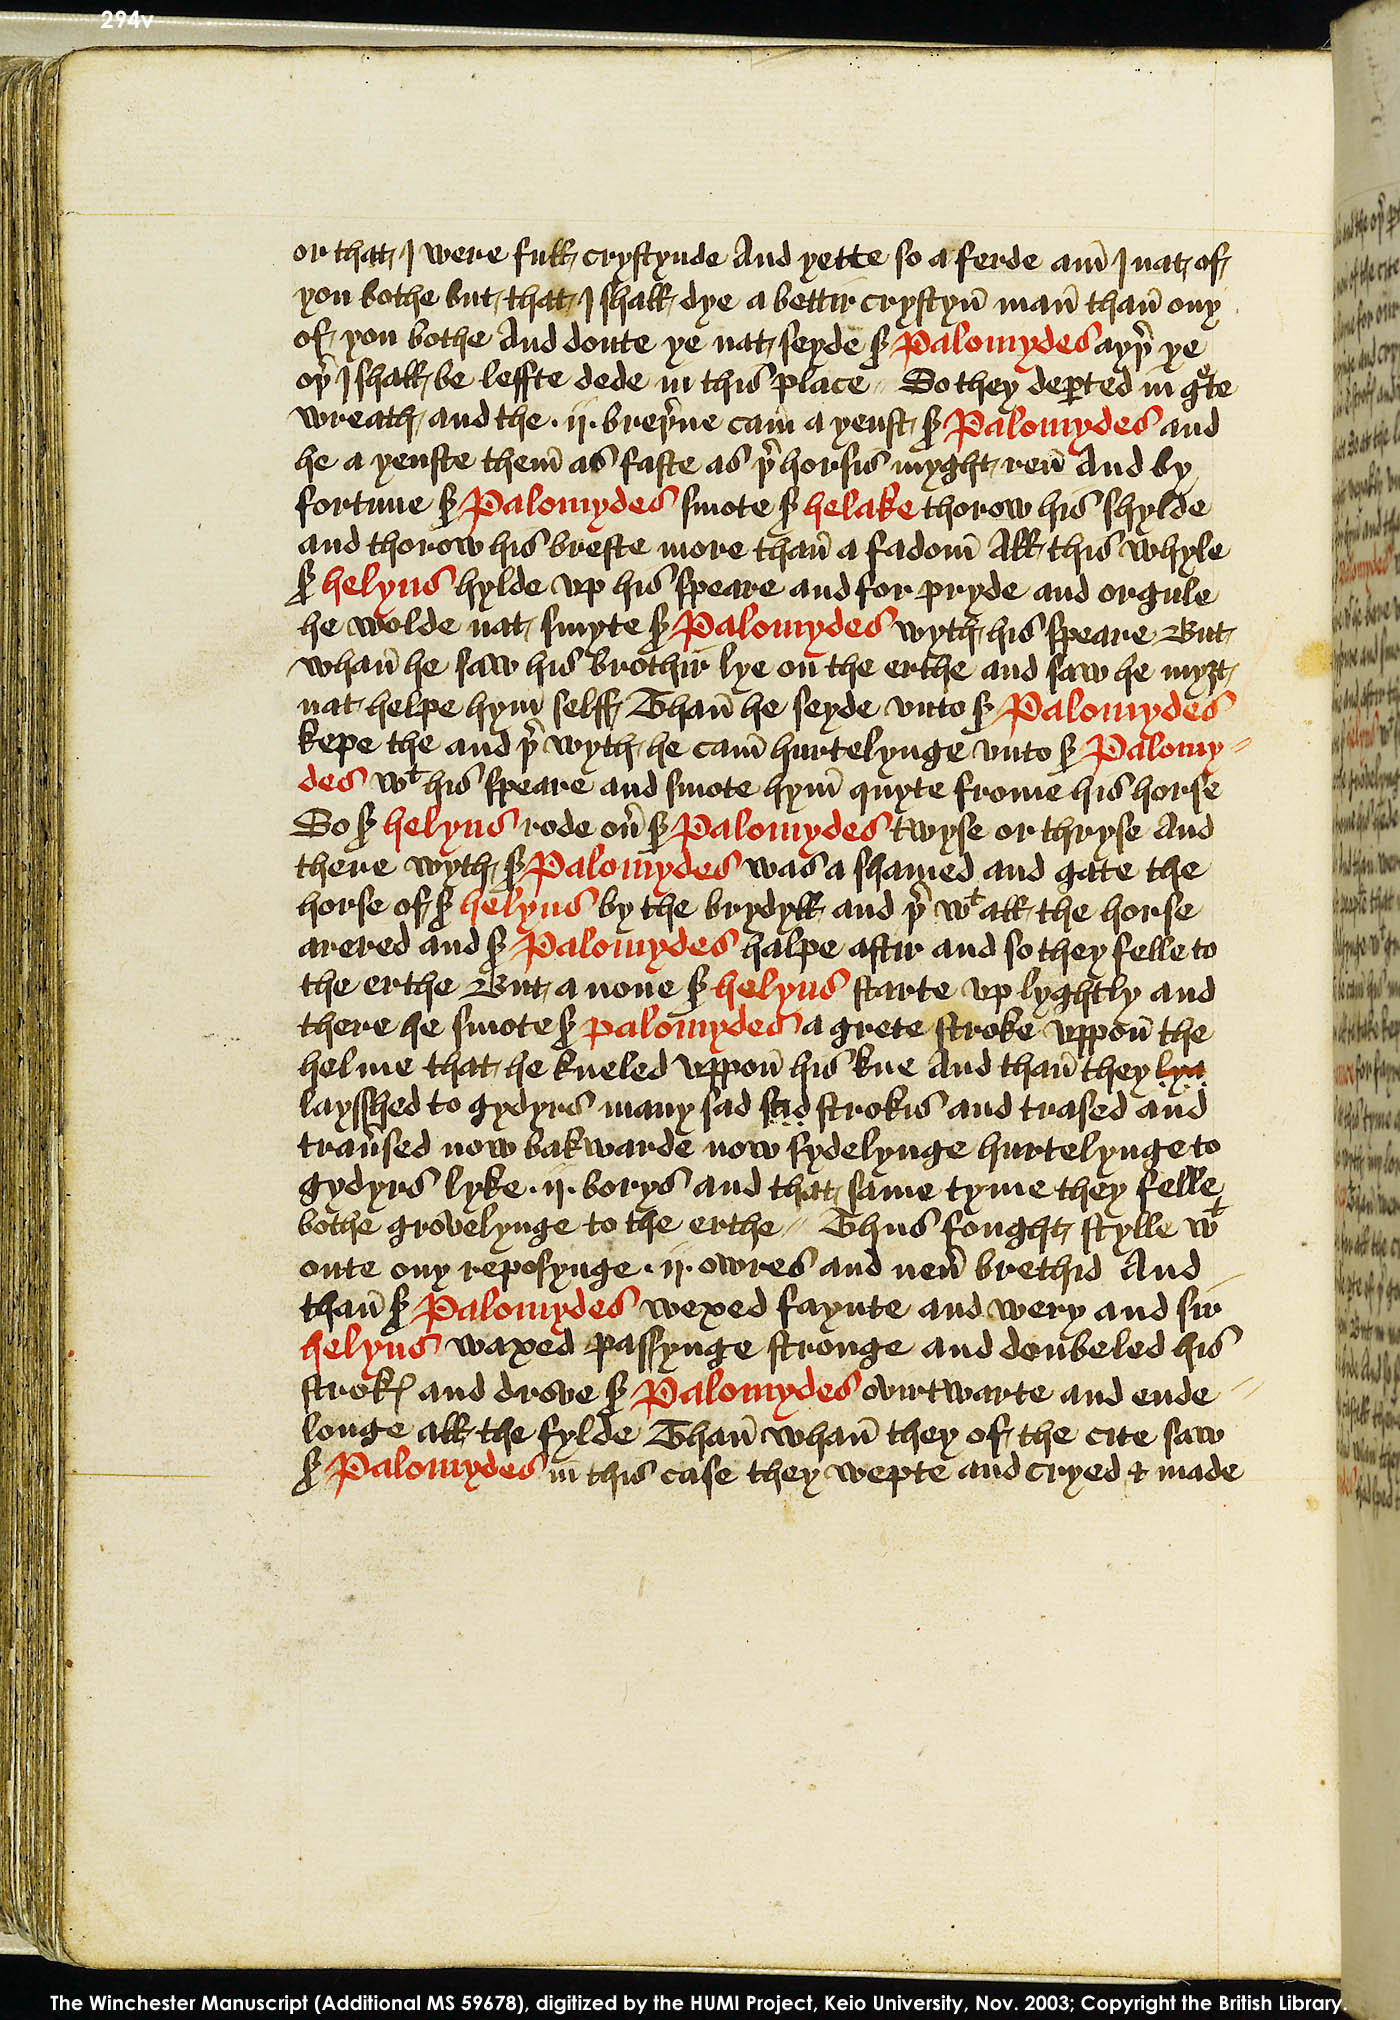 294v
or that I were full crystynde And yette so a ferde am̄ I nat of
you bothe but that I shall dye a bettir crystyn̄ man̄ than̄ ony
of you bothe And doute ye nat seyde sr Palomydes ayþr ye
oþr I shall be leffte dede in this place ⸗ So they dep̄ted in gre̊te
wreath and the · ij · breþrne cam̄ a yenst sr Palomydes and
he a yenste them̄ as faste as þr horsis myght ren̄ And by
fortune sr Palomydes smote sr helake thorow his shylde
and thorow his breste more than̄ a fadom̄ All this whyle
sr helyus hylde vp his speare and for pryde and orgule
he wolde nat smyte sr Palomydes wyth his speare But
whan̄ he saw his brothir lye on the erthe and saw he myȝt
nat helpe hym̄ selff Than̄ he seyde vnto sr Palomydes
kepe the and þr wyth he cam̄ hurtelynge vnto sr Palomy⸗
des wt his speare and smote hym̄ quyte frome his horse
So sr helyus rode ou̓ sr Palomydes twyse or thryse And
there wyth sr Palomydes was a shamed and gate the
horse of sr helyus by the brydyll and þr wt all the horse
arered and sr Palomydes halpe aftir and so they felle to
the erthe But a none sr helyus starte vp lyghtly and
there he smote sr palomydes a grete stroke vppon̄ the
helme that he kneled vppon̄ his kne And than̄ they lya
laysshed to gydyrs many sad stid strokis and trased and
trau̓sed now bakwarde now sydelynge hurtelynge to
gydyrs lyke · ij · borys and that same tyme they felle
bothe grovelynge to the erthe ⸗ Thus fought stylle wt
oute ony reposynge · ij · owres and neu̓ brethid And
than̄ sr Palomydes wexed faynte and wery and sir
helyus waxed passynge stronge and doubeled his
strokꝭ and drove sr Palomydes ovirtwarte and ende ⸗
longe all the fylde Than̄ whan̄ they of the cite saw
sr Palomydes in this case they wepte and cryed & made
The Winchester Manuscript (Additional MS 59678), digitized by the HUMI Project, Keio University, Nov. 2003; Copyright the British Library.